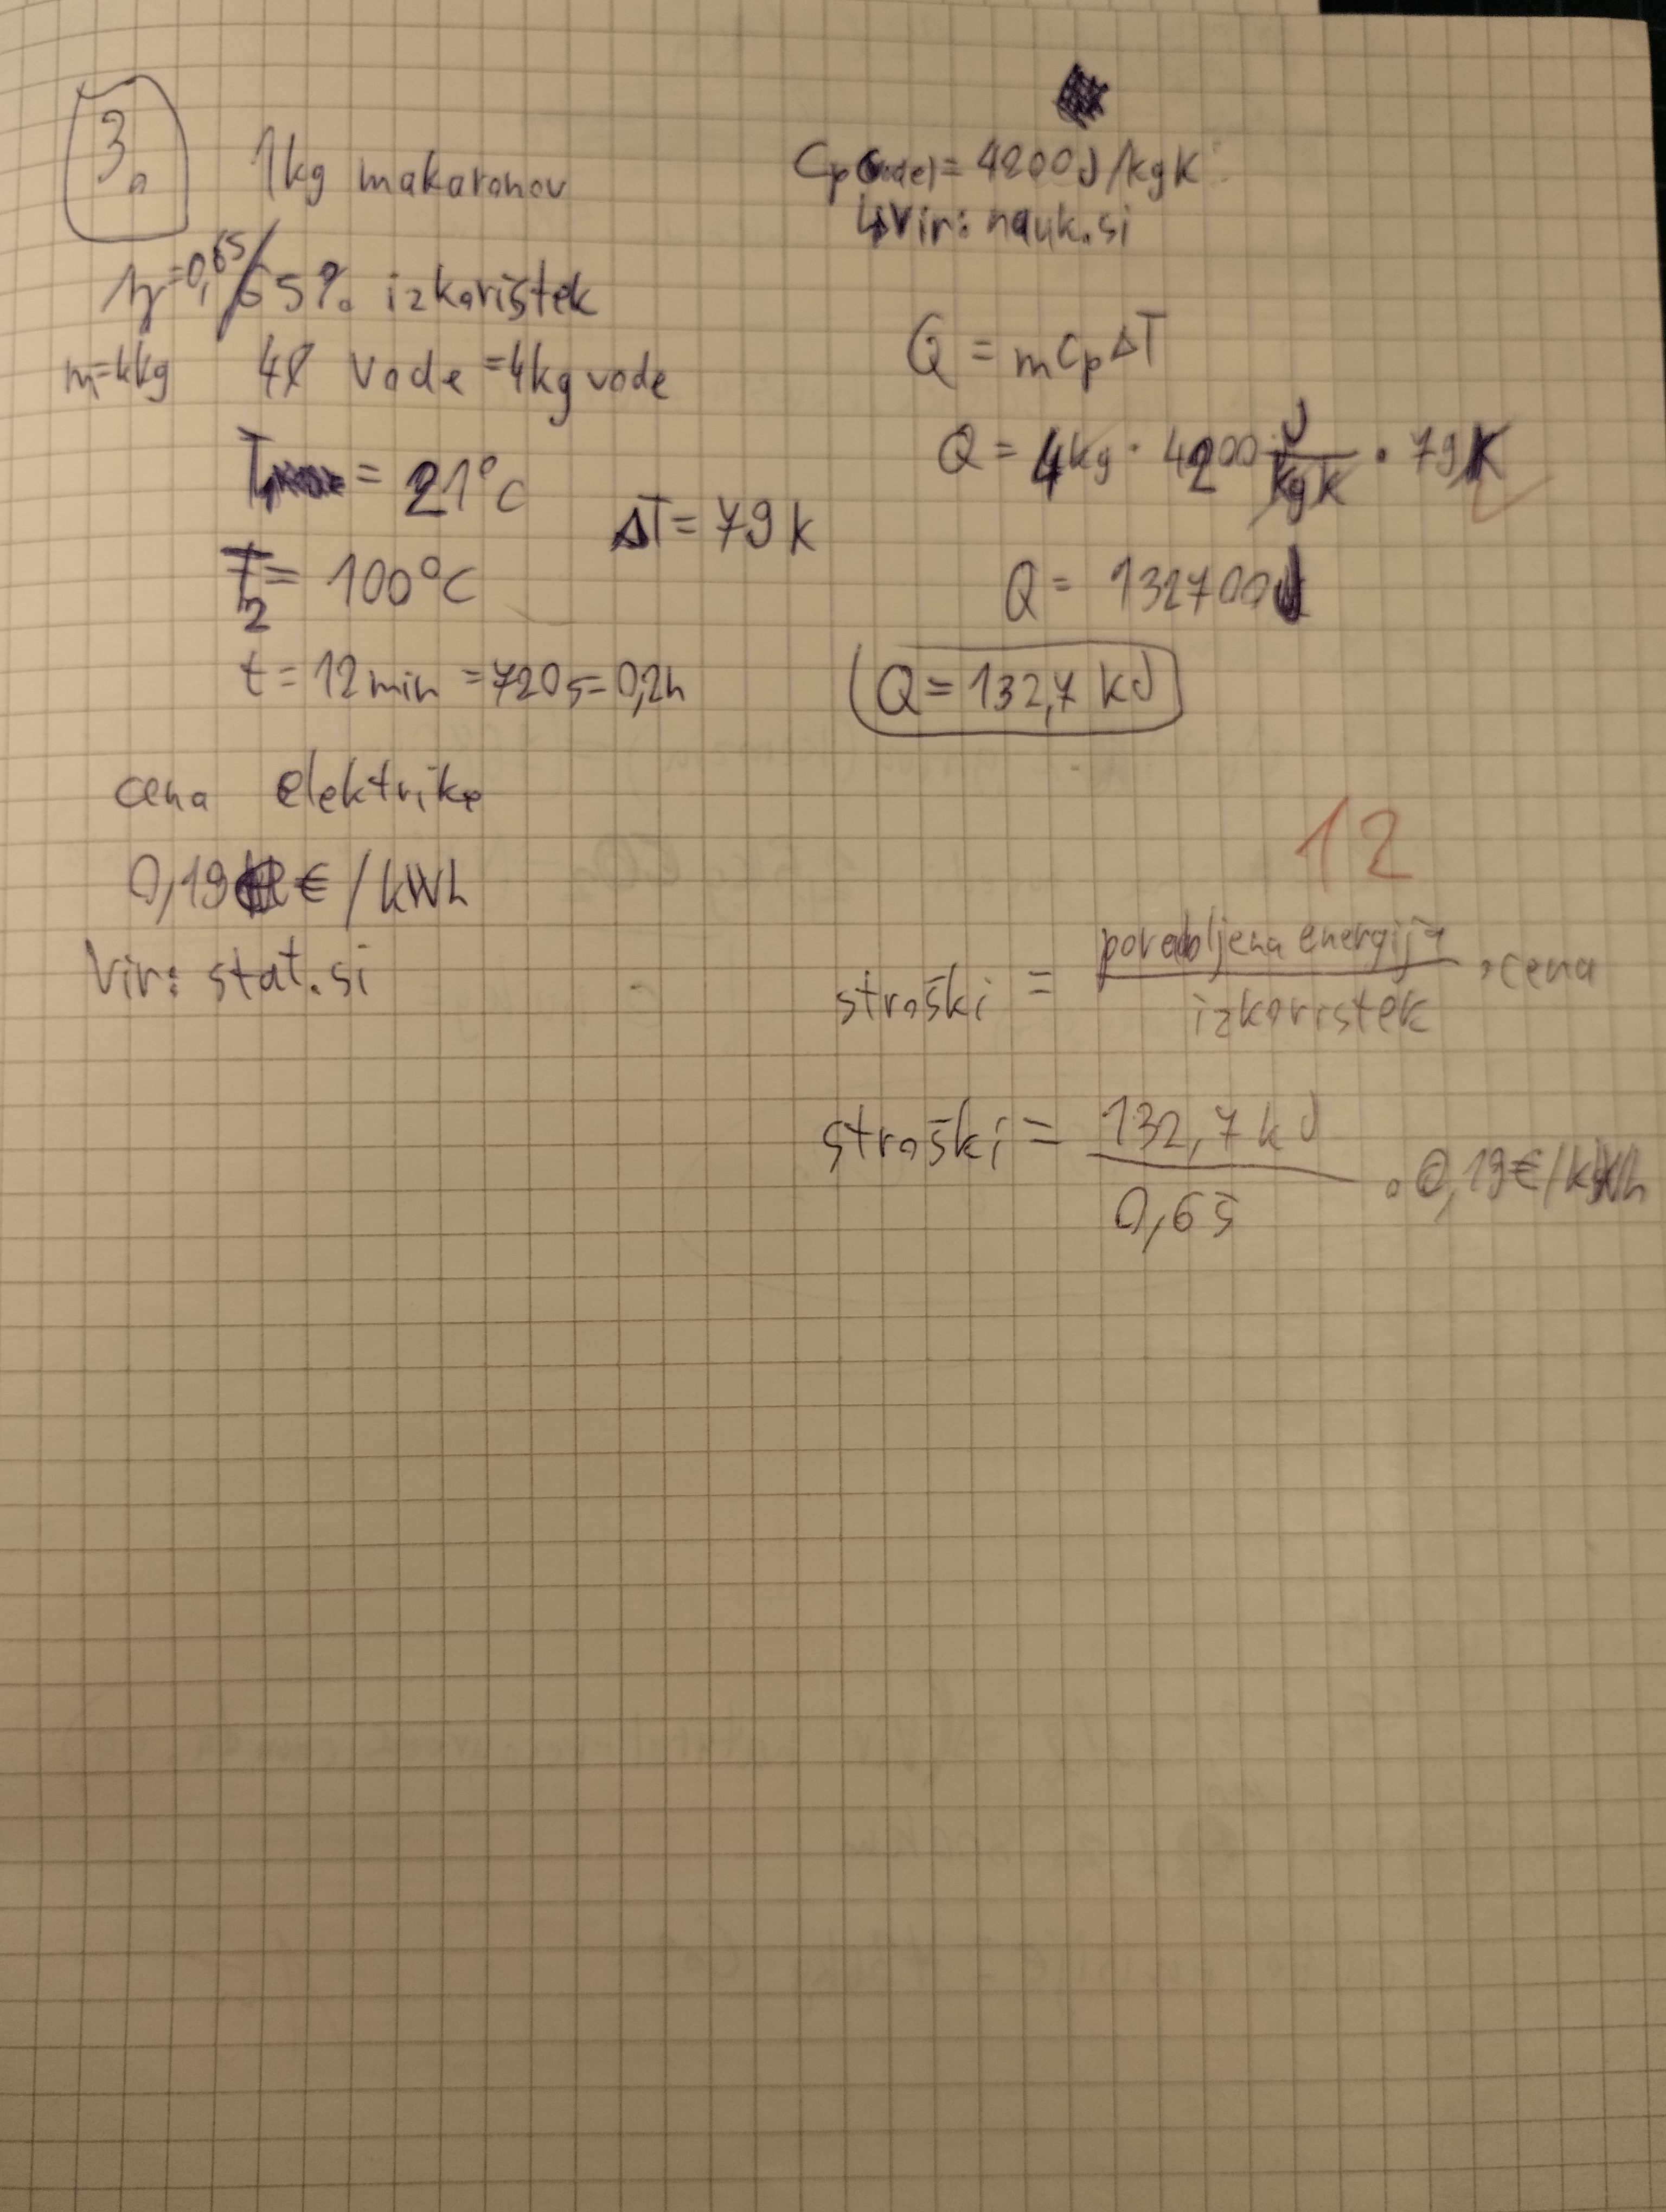 3.
1kg makaronov
η=0,65/65% izkoristek
m=4kg 4l vode =4kg vode
T = 21°C
ΔT = 79K
T2 = 100°C
t = 12min = 720s = 0,2h
cena elektrike
0,19 €/kWh
Vir: stat.si
Cp(vode) = 4200J/kgK
↳Vir: nauk.si
Q = mCpΔT
Q = 4kg · 4200 J/kgK · 79K
Q = 132700J
Q = 132,7 kJ
12
stroški = porabljena energija / izkoristek · cena
stroški = 132,7 kJ / 0,65 · 0,19€/kWh